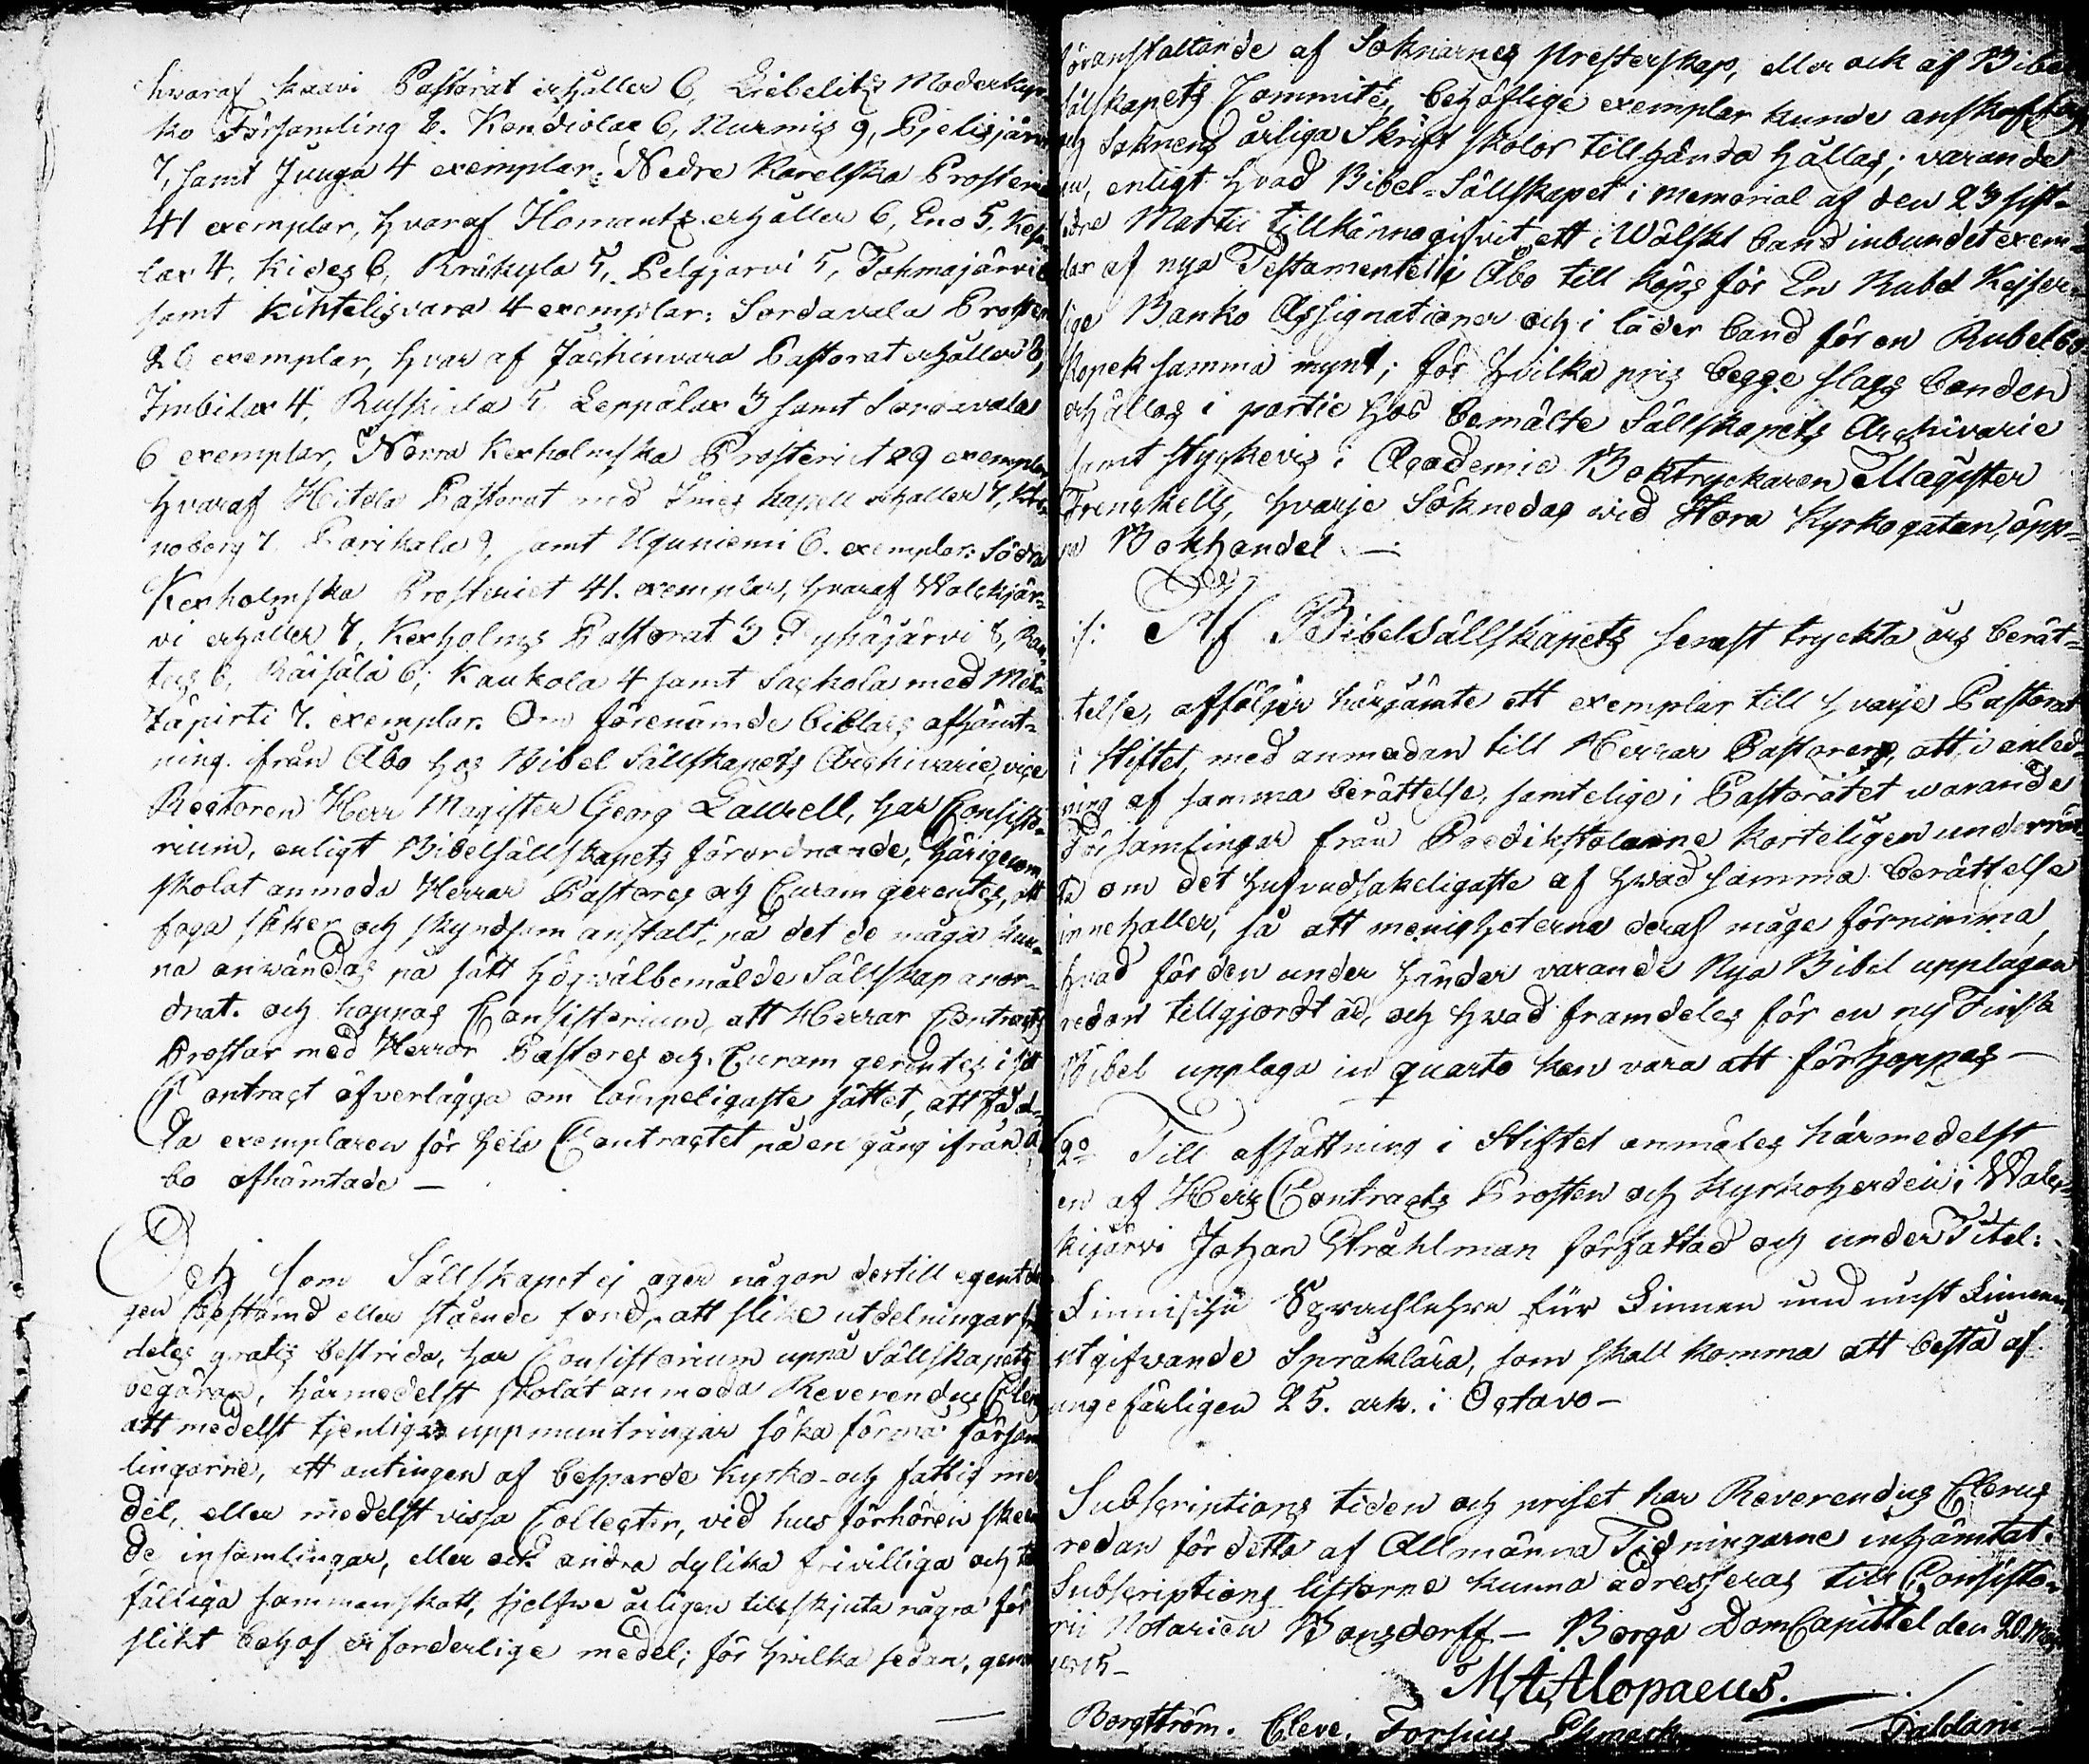 hvaraf Kaavi Pastorat erhåller 6, Liebelitz Moderkyr¬
ko Församling 8. Kondiolax 6, Nurmis 9, Pjelisjärvi
7, samt Juuga 4 exemplar: Nedre Karelska Prosteri
41 exemplar, hvaraf Ilomantz erhåller 6, Eno 5, Kes¬
lax 4, Kides 6, Bräkyla 5, Pelgjärvi 5, Tohmajärvi
samt Kihtelisvara 4 exemplar: Sordavala Proste
26 exemplar, hvaraf Jachimvara Pastorat erhåller 8,
Imbilax 4, Ruskiala 5, Leppälax 3 samt Sordavala
6 exemplar, Norra Kexholmska Prosteriet 29 exemplar
hvaraf Hitola Pastorat med Imes Kapell erhåller 7, Kro¬
noborg 7. Parikala 9, samt Uguniemi 6. exemplar: Södra
Kexholmska Prosteriet 41. exemplar, hvaraf Walckjär¬
vi erhåller 7, Kexholms Pastorat 3 Pyhäjärvi 8, Rau¬
tus 6, Räisälä 6; Kaukola 4 samt Sackola med Met¬
zäpirti 7. exemplar. Om förenämde biblars afhämt¬
ning ifrån Åbo hos Bibel Sällskapets Archivarie, vice
Rectoren Herr Magister Georg Laurell, har Consisto¬
rium, enligt Bibelsällskapets förordnande, härigenom
skolat anmoda Herrar Pastores och Curam gerentes, att
foga säker och skyndsam anstalt, på det de måga kun¬
na användas på sätt högvälbemälde Sällskap anor¬
dnat. och hoppas Consistorium, att Herrar Contracts
Prostar med Herrar Pastores och Curam gerentes i sitt
Contract öfverlägga om lämpeligaste sättet, att få al¬
la exemplaren för hela Contractet på en gång ifrån Å¬
bo afhämtade —
Och som Sällskapet ej äger någon dertill egentli
gen bestämd eller stående fond, att slike utdelningar
deles gratis bestrida, har Consistorium uppå Sällskapets
begäran, härmedelst skolat anmoda Reverendus Clerus
att medelst tjenliga uppmuntringar söka förmå försam
lingarne, att antingen af besparde kyrko- och fattig me
del, eller medelst vissa Collecter, vid husförhören skeen
de insamlingar, eller ock andra dylika frivilliga och till
fälliga sammanskott, sjelfwe årligen tillskjuta några för
slikt behof erforderlige medel; för hvilka sedan, genom
föranstaltande af Soknarnes Presterskap, eller ock af Bibel
sälskapets Committé, behöflige exemplar kunde anskaffas
och Soknens årliga Skrift skolor tillhanda hållas; varande
nu, enligt hvad Bibel-Sällskapet i memorial af den 23 sist¬
ledne Martii tillkännagifvit, ett i Wälskt band inbundet exem¬
plar af nya Testamentet i Åbo till köps för En Rubel Kejser¬
lige Banko Assignationer och i läder band för en Rubel 60
Kopek samma mynt; för hvilka pris begge slags banden
erhållas i partie hos bemälte Sällskapets Archivarie
samt styckevis i Academie Boktryckaren Magister
Frenckells, hvarje Söknedag wid Stora Kyrkogatan, öpp¬
na Bokhandel —
:/: Af Bibelsällskapets senast tryckta års berät¬
telse, afföljer härjämte ett exemplar till hvarje Pastorat
i Stiftet, med anmodan till Herrar Pastorers, att i anled¬
ning af samma berättelse, samtelige i Pastoratet warande
Församlingar från Predikstolarne korteligen underrät
ta om det hufvudsakeligaste af hwad samma berättelse
innehåller, så att menigheterna deraf måge förnimma,
hvad för den under händer varande Nya Bibel upplagan
redan tillgjordt är, och hwad framdeles för en ny Finsk
Bibel upplaga in quarto kan vara att förhoppas —
2:o Till afsättning i Stiftet anmäles härmedelst
en af Herr Contracts Prosten och Kyrkoherden i Walc¬
kijärvi Johan Stråhlman författad och under Titel:
Finnische Sprachlehre für Finnen und nicht Finnen,
utgifwande Språklära, som skall komma att bestå af
ungefärligen 25. ark. i Octavo —
Subscriptions tiden och priset har Reverendus Clerus
redan för detta af Allmänna Tidningarne inhämtat.
Subscriptions listorne kunna adresseras till Consisto¬
rii Notarien Bonsdorff — Borgå DomCapittel den 20. Maji
1815 —
M A Alopaeus.
Borgström. Cleve. Forsius Ekmark Faldani